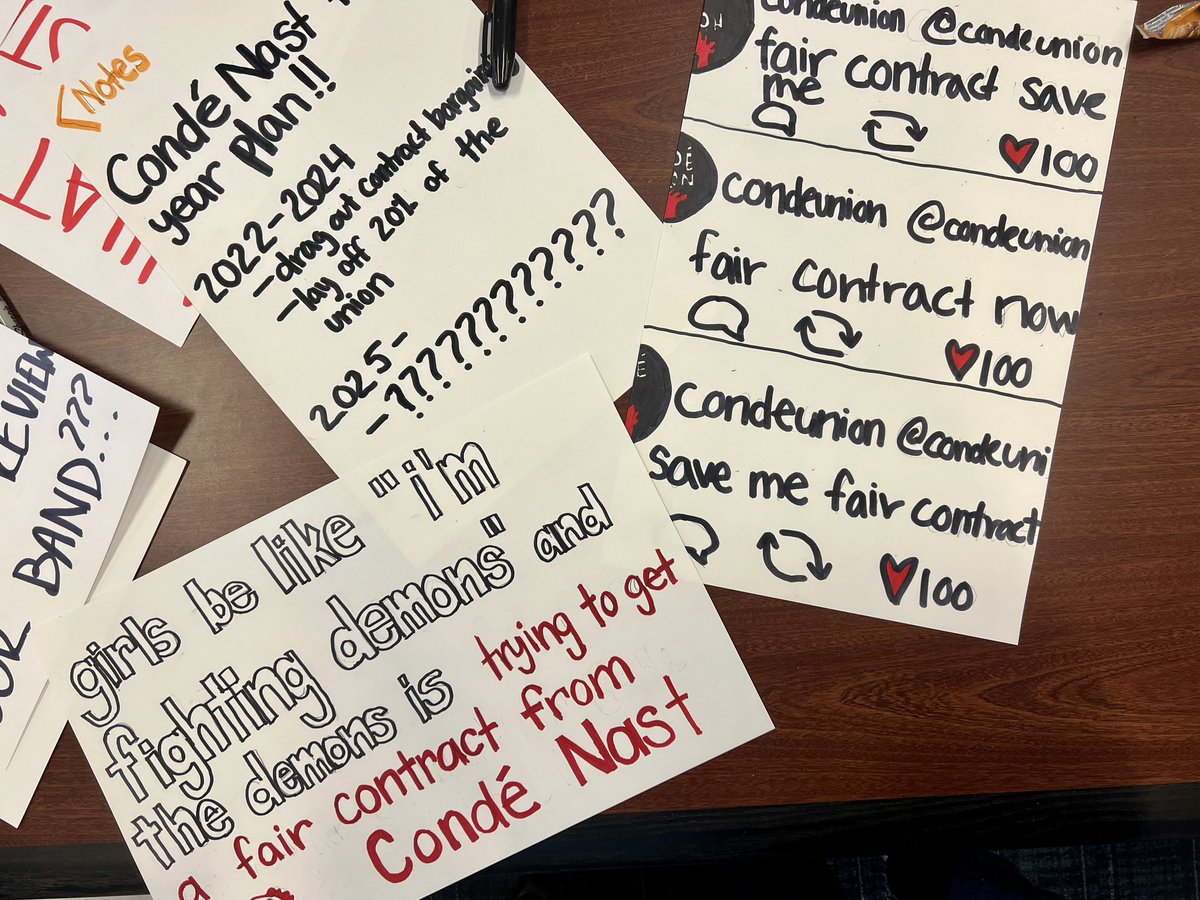 Notes
Condé Nast
year plan!!
2022-2024
-drag out contract bargain
-lay off 20% of the
union
2025-
-?????????????
condeunion @condeunion
fair contract save
me
100
condeunion @condeunion
fair contract now
100
condeunion @condeuni
save me fair contract
100
girls be like "i'm
fighting demons" and
the demons is trying to get
a fair contract from
Condé Nast
REVIEW
BAND???